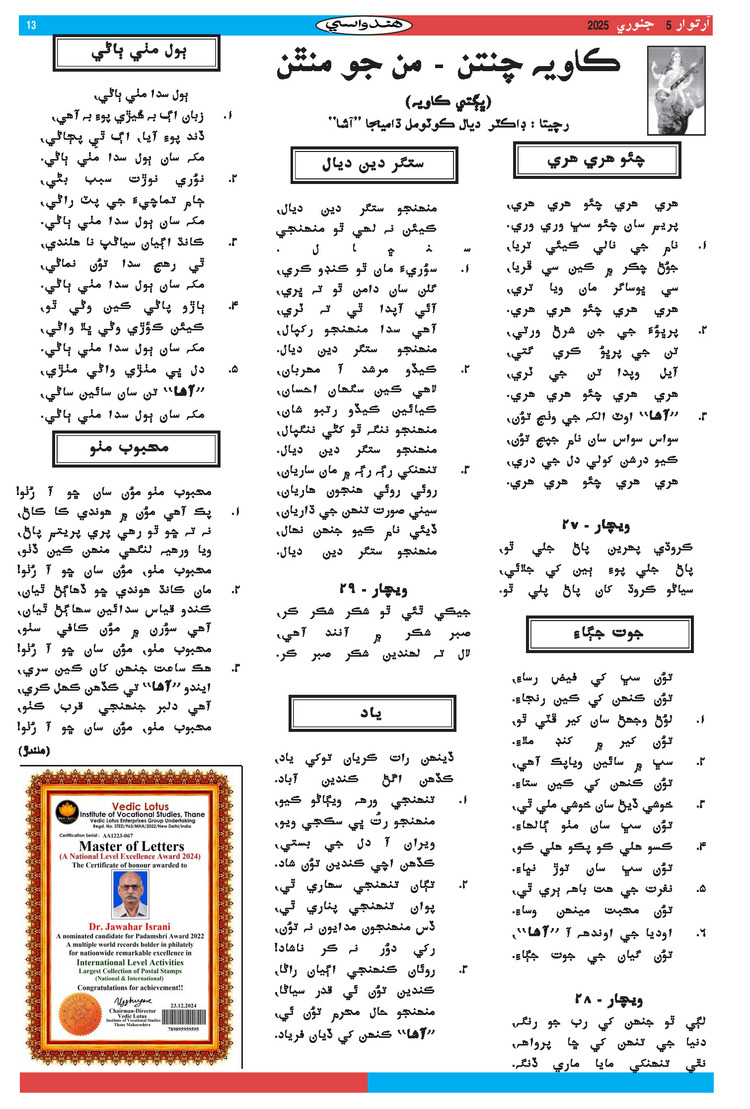 آرتوار 5 جنوري 2025
هندواسي
13
ڪاويه چنتن - من جو منٿن
(ڀڳتي ڪاويه)
رچيتا : ڊاڪٽر ديال ڪوٽومل ڌاميجا ”آشا“
چئو هري هري
هري هري چئو هري هري،
پريم سان چئو سڀ وري وري.
۱. نام جي نالي ڪيئي تريا،
جوڻ چڪر ۾ ڪين سي ڦريا،
سي ڀوساگر مان ويا تري،
هري هري چئو هري هري.
۲. پرڀوءَ جي جن شرڻ ورتي،
تن جي پرڀو ڪري گتي،
آيل وپدا تن جي ٽري،
هري هري چئو هري هري.
۳. ”آشا“ اوٽ الک جي وٺج تون،
سواس سواس سان نام جپج تون،
ڪيو درشن کولي دل جي دري،
هري هري چئو هري هري.
ويچار - ۲۷
ڪروڌي پهرين پاڻ جلي ٿو،
پاڻ جلي پوءِ ٻين کي جلائي،
سياڻو ڪروڌ کان پاڻ پلي ٿو.
جوت جڳاءِ
تون سڀ کي فيض رساءِ،
تون ڪنهن کي ڪين رنجاءِ.
۱. لوڻ وجهڻ سان کير ڦٽي ٿو،
تون کير ۾ کنڊ ملاءِ.
۲. سڀ ۾ سائين وياپڪ آهي،
تون ڪنهن کي ڪين ستاءِ.
۳. خوشي ڏيڻ سان خوشي ملي ٿي،
تون سڀ سان مٺو ڳالهاءِ.
۴. ڪسو هلي ڪو پڪو هلي ڪو،
تون سڀ سان توڙ نڀاءِ.
۵. نفرت جي هت باهه ٻري ٿي،
تون محبت مينهن وساءِ.
۶. اوديا جي اونداهه آ ”آشا“،
تون گيان جي جوت جڳاءِ.
ويچار - ۲۸
لڳي ٿو جنهن کي رب جو رنگ،
دنيا جي تنهن کي ڇا پرواهه،
نٿي تنهنکي مايا ماري ڏنگ.
ستگر دين ديال
منهنجو ستگر دين ديال،
ڪيئن نه لهي ٿو منهنجي
سنڀال.
۱. سوريءَ مان ٿو ڪنڊو ڪري،
گلن سان دامن ٿو ته ڀري،
آئي آپدا ٿي ته ٽري،
آهي سدا منهنجو رکپال،
منهنجو ستگر دين ديال.
۲. ڪيڏو مرشد آ مهربان،
لاهي ڪين سگهان احسان،
ڪيائين ڪيڏو رتبو شان،
منهنجو ننگ ٿو کڻي ننگپال،
منهنجو ستگر دين ديال.
۳. تنهنکي رڳ رڳ ۾ مان ساريان،
روئي روئي هنجون هاريان،
سيني صورت تنهن جي ڌاريان،
ڏيئي نام ڪيو جنهن نهال،
منهنجو ستگر دين ديال.
ويچار - ۲۹
جيڪي ٿئي ٿو شڪر شڪر ڪر،
صبر شڪر ۾ آنند آهي،
لال ته لهندين شڪر صبر ڪر.
ياد
ڏينهن رات ڪريان توکي ياد،
ڪڏهن اڱڻ ڪندين آباد.
۱. تنهنجي ورهه ويڳاڻو ڪيو،
منهنجو رت ڀي سڪجي ويو،
ويران آ دل جي بستي،
ڪڏهن اچي ڪندين تون شاد.
۲. تڳان تنهنجي سهاري ٿي،
پوان تنهنجي پناري ٿي،
ڏس منهنجون مدايون نه تون،
رکي دور نه ڪر ناشاد!
۳. روئان ڪنهنجي اڳيان راڻا،
ڪندين تون ئي قدر سياڻا،
منهنجو حال محرم تون ئي،
”آشا“ ڪنهن کي ڏيان فرياد.
ٻول مٺي ٻاڻي
ٻول سدا مٺي ٻاڻي،
۱. زبان اڳ به هئڙي پوءِ به آهي،
ڏند پوءِ آيا، اڳ ٿي پڇاڻي،
مک سان ٻول سدا مٺي ٻاڻي.
۲. نوري نوڙت سبب بڻي،
ڄام تماچيءَ جي پٽ راڻي،
مک سان ٻول سدا مٺي ٻاڻي.
۳. ڪانڌ اڳيان سياڻپ نا هلندي،
ٿي رهج سدا تون نماڻي،
مک سان ٻول سدا مٺي ٻاڻي.
۴. ٻاڙو پاڻي ڪين وڻي ٿو،
ڪيئن ڪوڙي وڻي ڀلا واڻي،
مک سان ٻول سدا مٺي ٻاڻي.
۵. دل ڀي منڙي واڻي منڙي،
”آشا“ تن سان سائين ساڻي،
مک سان ٻول سدا مٺي ٻاڻي.
محبوب مٺو
محبوب مٺو مون سان ڇو آ رٺو!
۱. پڪ آهي مون ۾ هوندي ڪا کاڻ،
نه ته ڇو ٿو رهي پري پريتم پاڻ،
ويا ورهيه لنگهي منهن ڪين ڏٺو،
محبوب مٺو، مون سان ڇو آ رٺو!
۲. مان ڪانڌ هوندي ڇو ڏهاڳڻ ٿيان،
ڪندو قياس سدائين سهاڳڻ ٿيان،
آهي سورن ۾ مون ڪافي سٺو،
محبوب مٺو، مون سان ڇو آ رٺو!
۳. هڪ ساعت جنهن کان ڪين سري،
ايندو ”آشا“ تي ڪڏهن ڪهل ڪري،
آهي دلبر جنهنجي قرب ڪٺو،
محبوب مٺو، مون سان ڇو آ رٺو!
(هلندڙ)
Vedic Lotus
Institute of Vocational Studies, Thane
Vedic Lotus Enterprises Group Undertaking
Regd. No: STED/963/MHA/2022/New Delhi/India
Certification Serial : AA1223-067
Master of Letters
(A National Level Excellence Award 2024)
The Certificate of honour awarded to
Dr. Jawahar Israni
A nominated candidate for Padamshri Award 2022
A multiple world records holder in philately
for nationwide remarkable excellence in
International Level Activities
Largest Collection of Postal Stamps
(National & International)
Congratulations for achievement!!
23.12.2024
Chairman-Director
Vedic Lotus
Institute of Vocational Studies
Thane Maharashtra